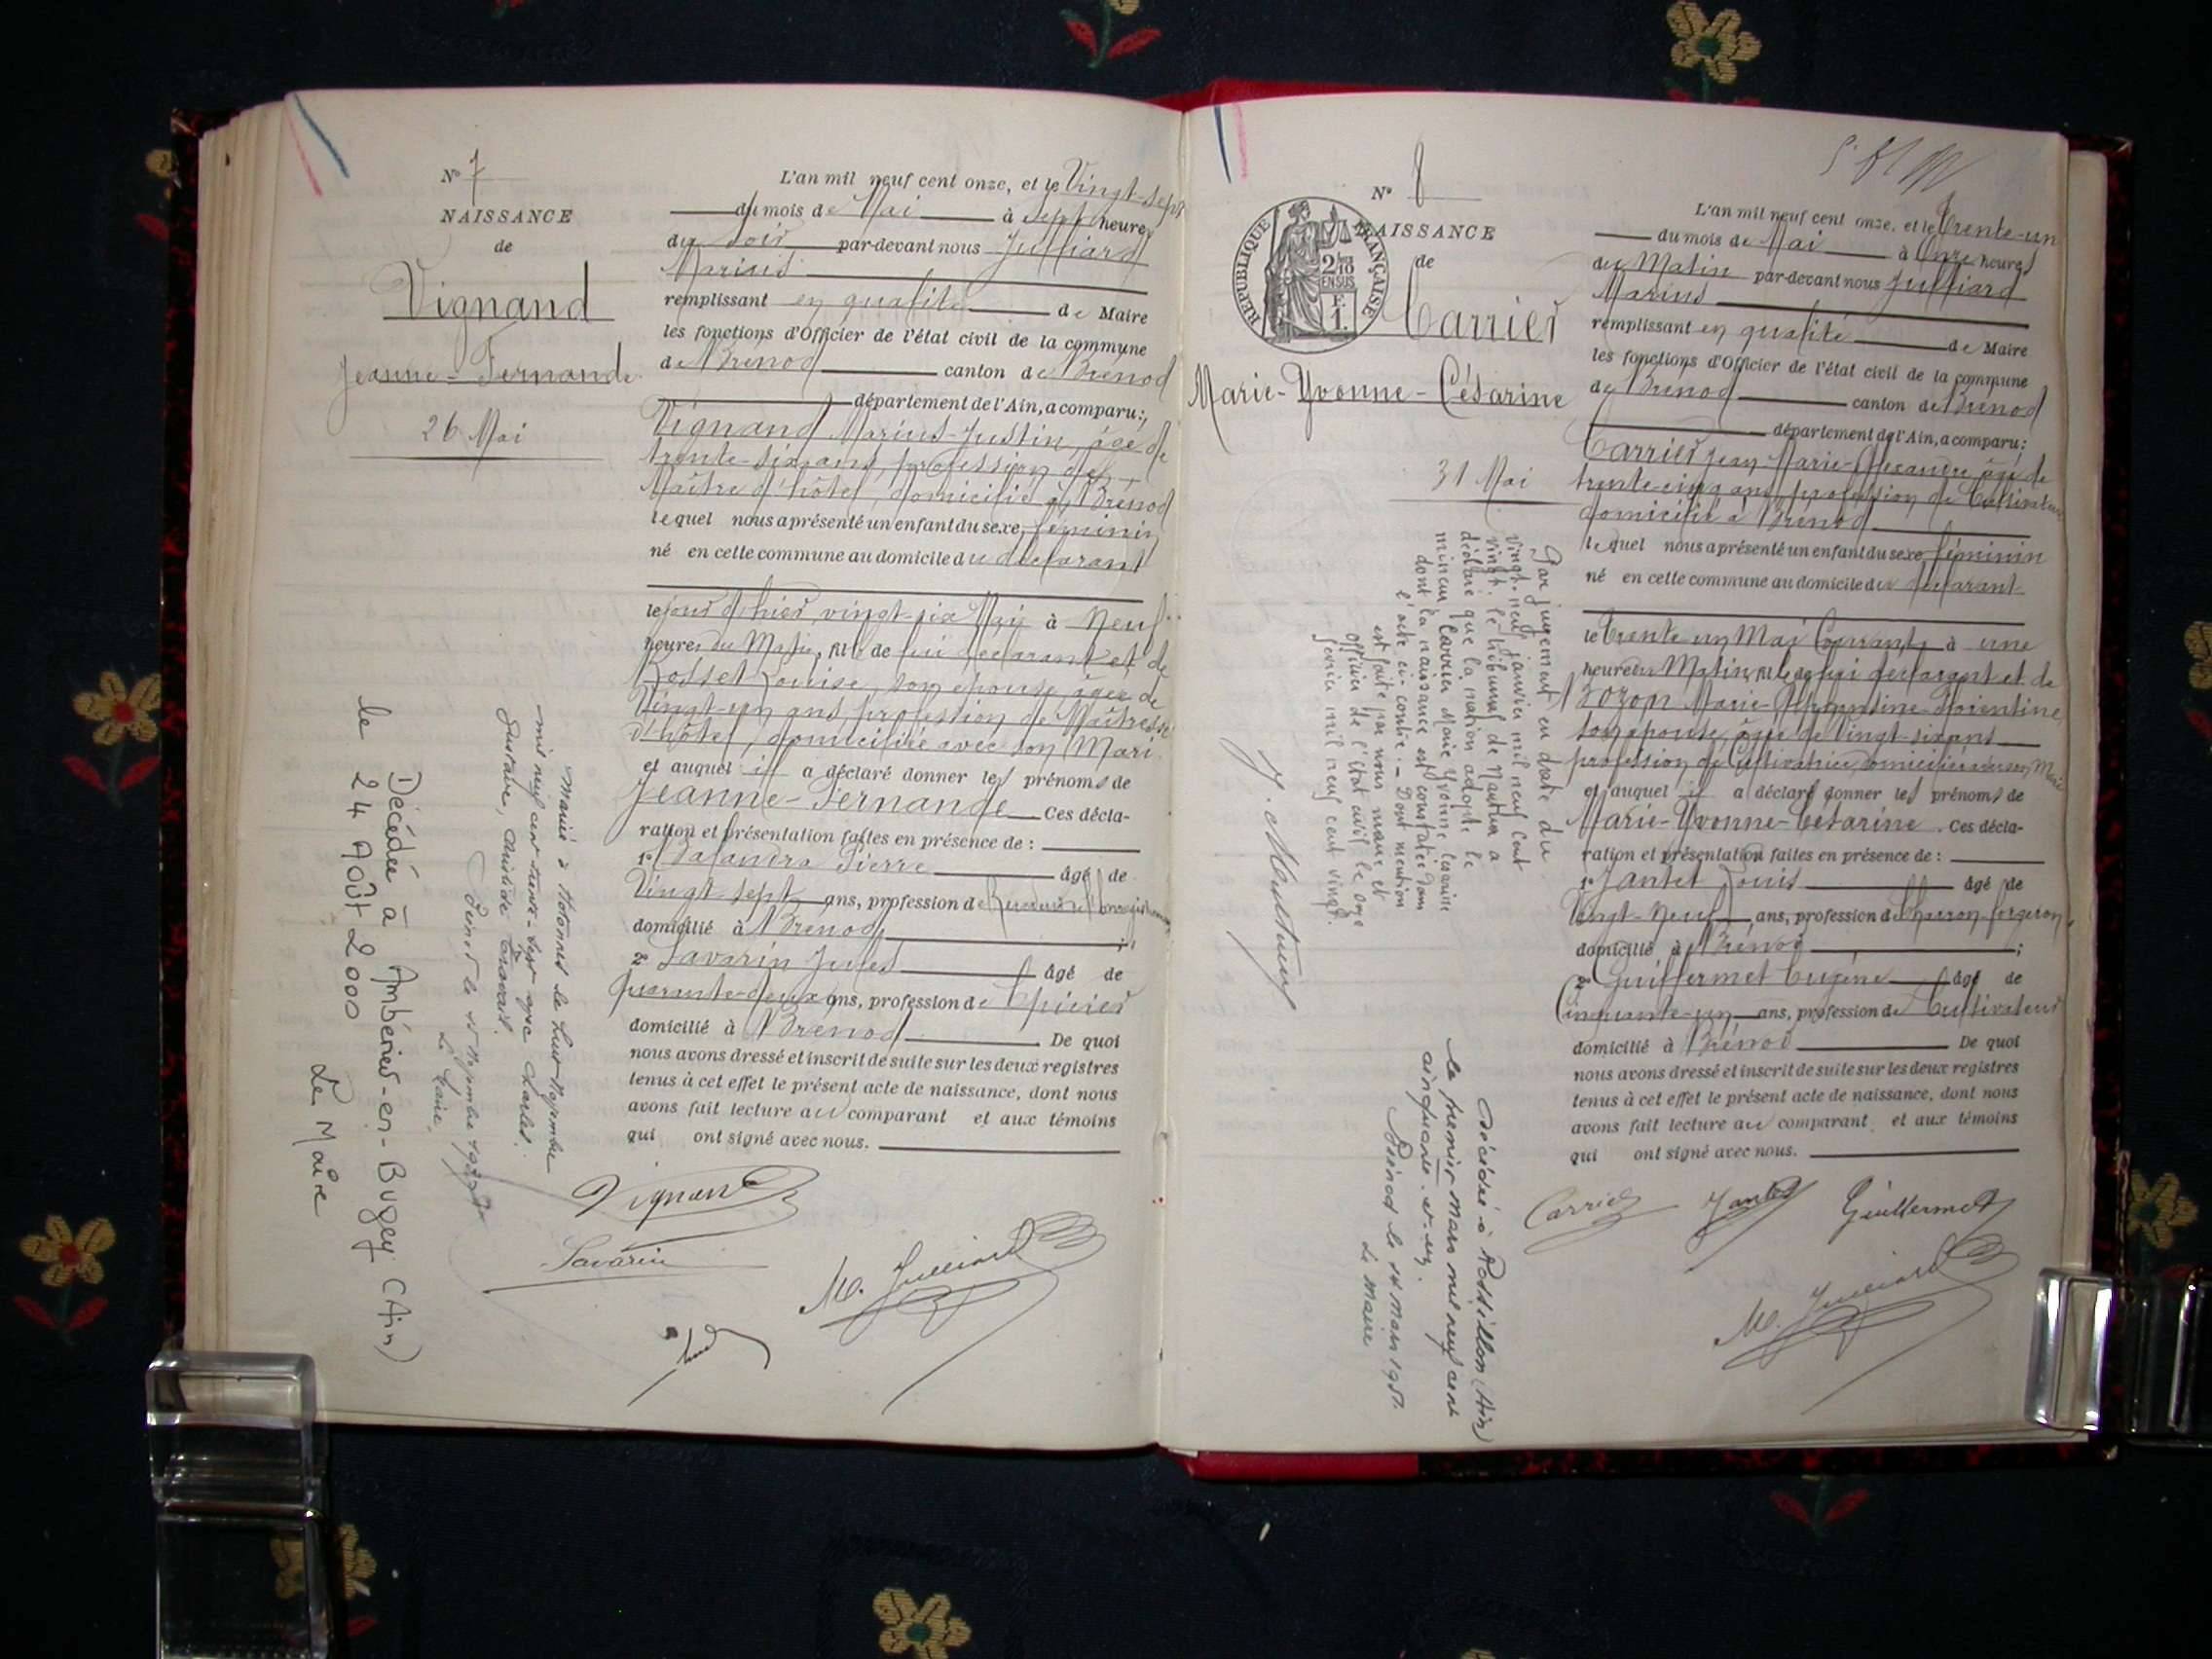 N° 7
NAISSANCE
de
Vignand
Jeanne-Fernande
26 Mai
L'an mil neuf cent onze, et le Vingt-sept
du mois de Mai à Sept heures
du soir par-devant nous Julliard
Marius
remplissant en qualité de Maire
les fonctions d'Officier de l'état civil de la commune
de Brénod canton de Brénod
département de l'Ain, a comparu:
Vignand Marius-Justin, âgé de
trente-six ans, profession de
Maître d'hôtel, domicilié à Brénod
lequel nous a présenté un enfant du sexe féminin
né en cette commune au domicile du déclarant
le jour d'hier vingt-six Mai à Neuf
heures du Matin, fille de lui déclarant et de
Rosset Louise, son épouse, âgée de
Vingt-un ans, profession de Maîtresse
d'hôtel, domiciliée avec son Mari
et auquel il a déclaré donner les prénoms de
Jeanne-Fernande Ces décla-
ration et présentation faites en présence de :
1° Pierre âgé de
Vingt sept ans, profession de
domicilié à Brénod ;
2° Savarin Jules âgé de
quarante-deux ans, profession de Epicier
domicilié à Brénod De quoi
nous avons dressé et inscrit de suite sur les deux registres
tenus à cet effet le présent acte de naissance, dont nous
avons fait lecture au comparant et aux témoins
qui ont signé avec nous.
Vignand
Savarin
M. Julliard
Mariée à Hotonnes le huit Novembre
mil neuf cent trente-sept avec Charles,
Gustave, Aristide
Brénod le 15 Novembre 1937
Le Maire,
Décédée à Ambérieu-en-Bugey (Ain)
le 24 Août 2000
Le Maire
N° 8
NAISSANCE
de
REPUBLIQUE FRANÇAISE
2/10 EN SUS
F.
1.
Carrier
Marie-Yvonne-Césarine
31 Mai
Par jugement en date du
vingt-neuf janvier mil neuf cent
vingt, le tribunal de Nantua a
déclaré que la nation adopte le
mineur Carrier Marie Yvonne Césarine
dont la naissance est constatée dans
l'acte ci-contre. - Dont mention
est faite par nous maire et
officier de l'état civil le onze
février mil neuf cent vingt.
Décédée à Rossillon (Ain)
le premier mars mil neuf cent
cinquante-et-un.
Brénod le 14 mars 1951.
Le Maire
L'an mil neuf cent onze, et le Trente-un
du mois de Mai à Onze heures
du Matin par-devant nous Julliard
Marius
remplissant en qualité de Maire
les fonctions d'Officier de l'état civil de la commune
de Brénod canton de Brénod
département de l'Ain, a comparu:
Carrier Jean-Marie-Alexandre, âgé de
trente-cinq ans, profession de Cultivateur
domicilié à Brénod
lequel nous a présenté un enfant du sexe féminin
né en cette commune au domicile du déclarant
le trente un Mai Courant à une
heure du Matin, fille de lui déclarant et de
Bozon Marie-Florentine
son épouse, âgée de Vingt-six ans
profession de Cultivatrice, domiciliée avec son Mari
et auquel il a déclaré donner les prénoms de
Marie-Yvonne-Césarine. Ces décla-
ration et présentation faites en présence de :
1° Jantet Louis âgé de
Vingt-Neuf ans, profession de Charron-forgeron
domicilié à Brénod ;
2° Guillermet Eugène âgé de
Cinquante-un ans, profession de Cultivateur
domicilié à Brénod De quoi
nous avons dressé et inscrit de suite sur les deux registres
tenus à cet effet le présent acte de naissance, dont nous
avons fait lecture au comparant et aux témoins
qui ont signé avec nous.
Carrier Jantet Guillermet
M. Julliard